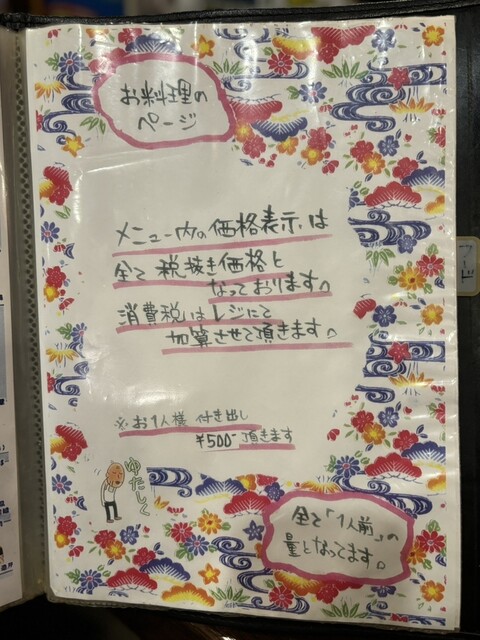 お料理の
ページ
メニュー内の価格表示は
全て税抜き価格と
なっております。
消費税はレジにて
加算させて頂きます。
※お1人様 付き出し
¥500- 頂きます
ゆたしく
全て「1人前」の
量となってます。